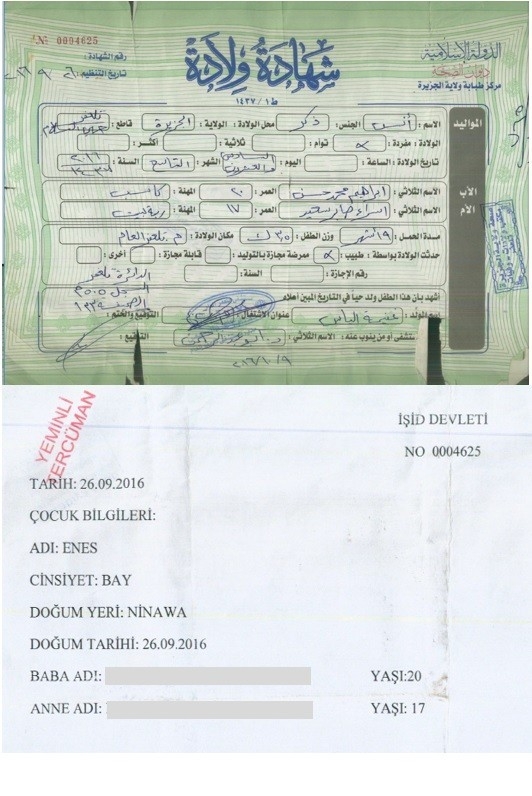 № 0004625
شهادة ولادة
الدولة الإسلامية
ديوان الصحة
مركز طبابة ولاية الجزيرة
رقم الشهادة :
تاريخ التنظيم : ٢٠١٦/٩/٢٦
ط١ / ١٤٣٧
المواليد
الاسم : أنس الجنس : ذكر محل الولادة : الولاية : الجزيرة قاطع : تلعفر
الولادة : مفردة توأم : ثلاثية : أكثر :
تاريخ الولادة : الساعة : اليوم : السادس والعشرون الشهر : التاسع السنة : ٢٠١٦
الأب
الاسم الثلاثي : ابراهيم محمد حسن العمر : ٢٠ المهنة : كاسب
الأم
الاسم الثلاثي : اسراء العمر : ١٧ المهنة : ربة بيت
مدة الحمل : ٩ شهر وزن الطفل : ٣,٥ ك مكان الولادة : م. تلعفر العام
حدثت الولادة بواسطة : طبيب : ممرضة مجازة بالتوليد : قابلة مجازة : أخرى :
رقم الإجازة : السنة :
أشهد بأن هذا الطفل ولد حيا في التاريخ المبين أعلاه
عنوان الاشتغال : التوقيع والختم :
مستشفى أو من ينوب عنه : الاسم الثلاثي : التوقيع :
٢٠١٦/١٠/٩
YEMİNLİ
TERCÜMAN
İŞİD DEVLETİ
NO 0004625
TARİH: 26.09.2016
ÇOCUK BİLGİLERİ:
ADI: ENES
CİNSİYET: BAY
DOĞUM YERİ: NINAWA
DOĞUM TARİHİ: 26.09.2016
BABA ADI: YAŞI:20
ANNE ADI: YAŞI: 17